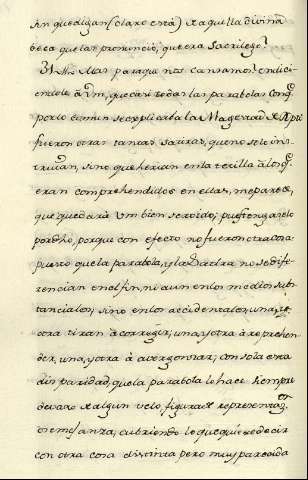 sin que digan (claro està) de aquella divina
boca que las pronunciò, que era Sacrilego?
31. Mas para que nos cansamos en dicien-
dole à Vm, que casi todas las parabolas con q.
por lo comun se explicaba la Magestad de Xpto
fueron otras tantas satiras, que no solo ins-
truian, sino que herian en la tetilla à los q.
eran comprehendidos en ellas, me parece,
que quedarà Vm bien servido; pues tengaselo
por dho, porque con efecto no fueron otra cosa
puesto que la parabola, y la Satira no se dife-
rencian en el fin, ni aun en los medios subs-
tanciales; sino en los accidentales, una, y
otra tiran à corregir; una, y otra à reprehen-
der, una, y otra à avergonzar; con sola esta
disparidad, que la parabola lo hace siempre
devaxo de algun velo, figura, representaz.on
ò semejanza, cubriendo lo que quiere decir
con otra cosa distinta pero muy parecida